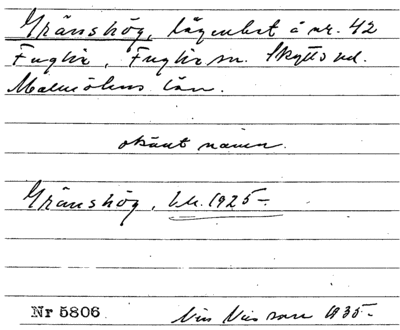 Gränshög, lägenhet å nr. 42
Fuglie, Fuglie sn. Skytts hd.
Malmöhus län.
okänt namn.
Gränshög, 1925-
Nr 5806
Nils Nilsson 1935-